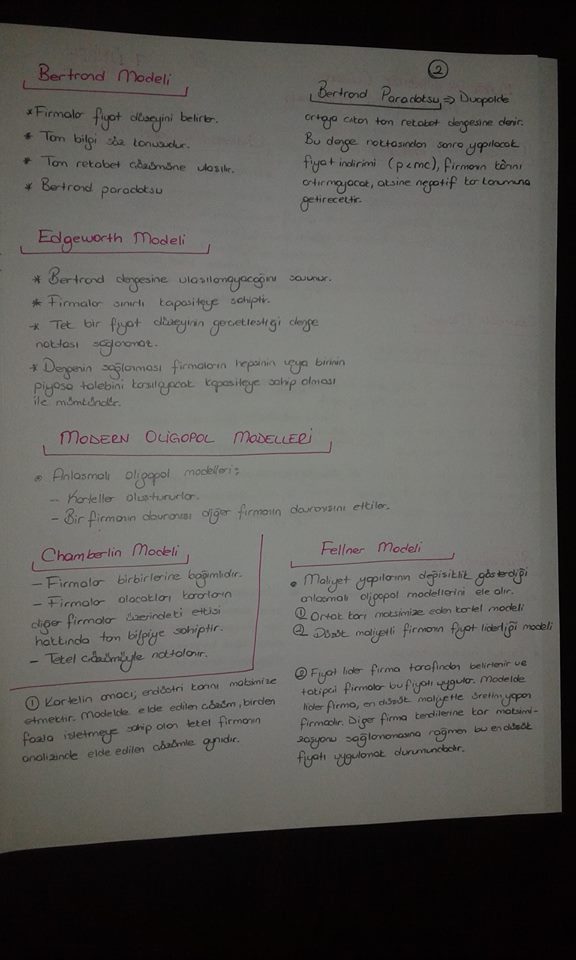 2
Bertrand Modeli
* Firmalar fiyat düzeyini belirler.
* Tam bilgi söz konusudur.
* Tam rekabet çözümüne ulaşılır.
* Bertrand paradoksu
Bertrand Paradoksu => Duopolde
ortaya çıkan tam rekabet dengesine denir.
Bu denge noktasından sonra yapılacak
fiyat indirimi (p<mc), firmanın kârını
artırmayacak, aksine negatif kar konumuna
getirecektir.
Edgeworth Modeli
* Bertrand dengesine ulaşılamayacağını savunur.
* Firmalar sınırlı kapasiteye sahiptir.
* Tek bir fiyat düzeyinin gerçekleştiği denge
noktası sağlanamaz.
* Dengenin sağlanması firmaların hepsinin veya birinin
piyasa talebini karşılayacak kapasiteye sahip olması
ile mümkündür.
MODERN OLİGOPOL MODELLERİ
Anlaşmalı oligopol modelleri;
- Karteller oluştururlar.
- Bir firmanın davranışı diğer firmanın davranışını etkiler.
Chamberlin Modeli
- Firmalar birbirlerine bağımlıdır.
- Firmalar alacakları kararların
diğer firmalar üzerindeki etkisi
hakkında tam bilgiye sahiptir.
- Tekel çözümüyle noktalanır.
① Kartelin amacı; endüstri karını maksimize
etmektir. Modelde elde edilen çözüm, birden
fazla işletmeye sahip olan tekel firmanın
analizinde elde edilen çözümle aynıdır.
Fellner Modeli
• Maliyet yapılarının değişiklik gösterdiği
anlaşmalı oligopol modellerini ele alır.
① Ortak karı maksimize eden kartel modeli
② Düşük maliyetli firmanın fiyat liderliği modeli
② Fiyat lider firma tarafından belirlenir ve
takipçi firmalar bu fiyatı uygular. Modelde
lider firma, en düşük maliyetle üretim yapan
firmadır. Diğer firma kendilerine kar maksimi-
zasyonu sağlanmamasına rağmen bu en düşük
fiyatı uygulamak durumundadır.